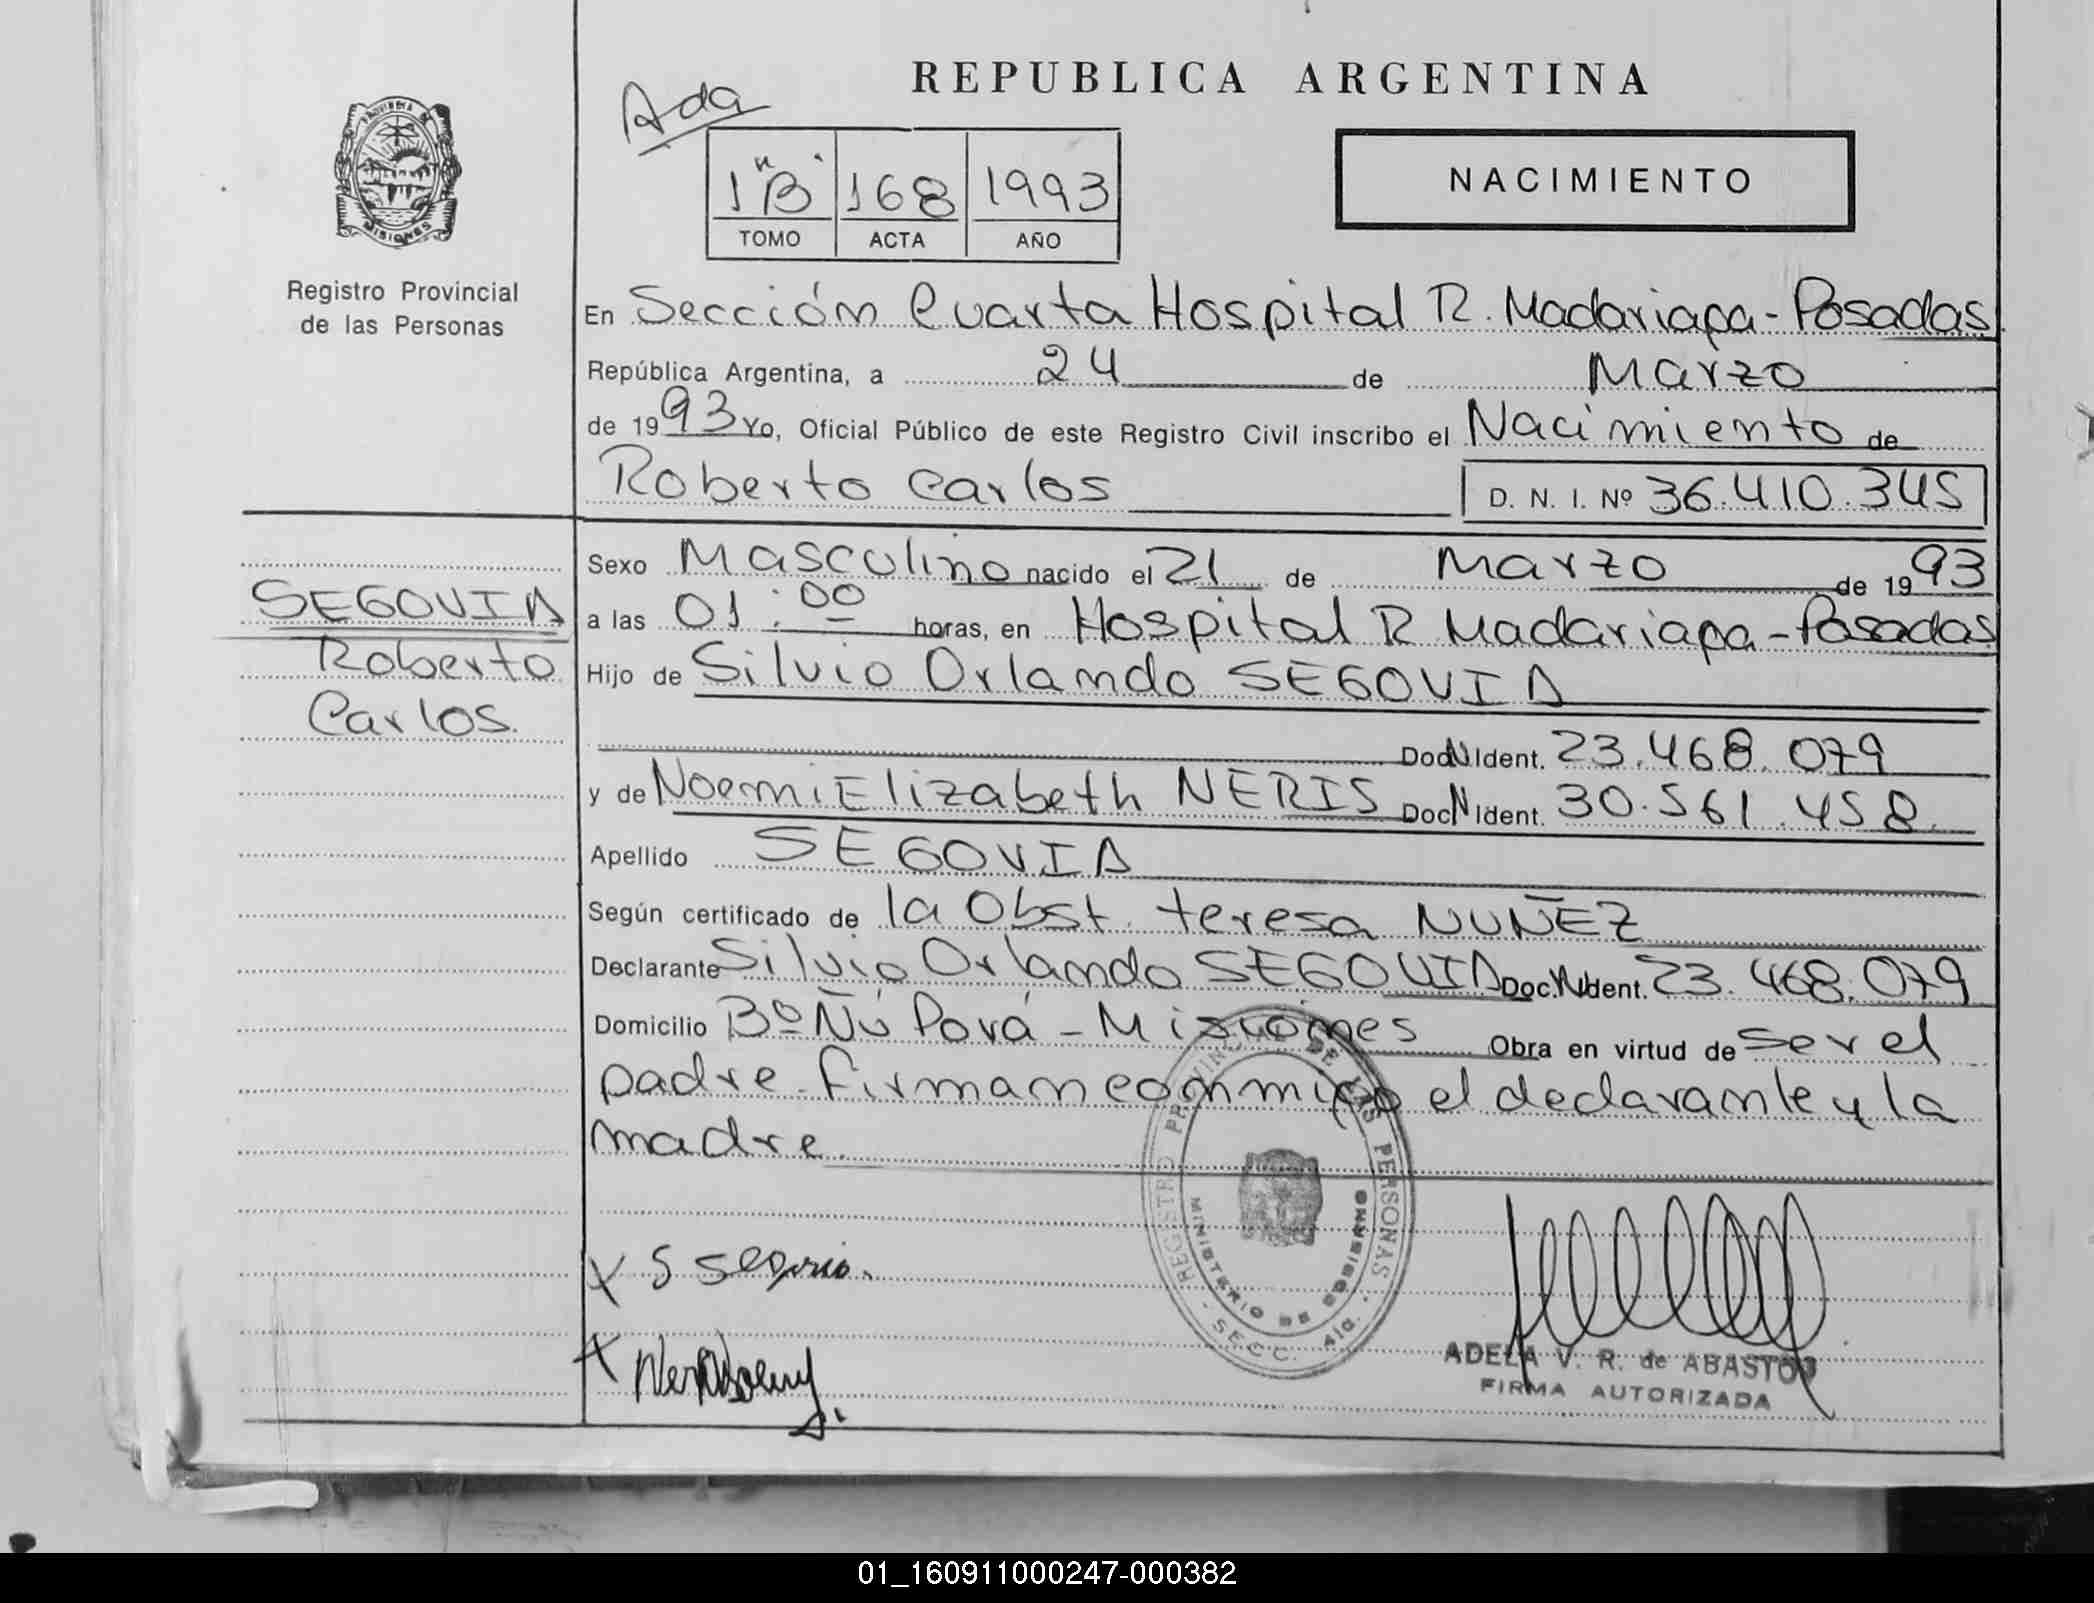 REPUBLICA ARGENTINA
Ada
1"B"
168
1993
TOMO
ACTA
AÑO
NACIMIENTO
PROVINCIA DE
MISIONES
Registro Provincial
de las Personas
En Sección Cuarta Hospital R. Madariaga - Posadas
República Argentina, a 24 de Marzo
de 1993 Yo, Oficial Público de este Registro Civil inscribo el Nacimiento de
Roberto Carlos D. N. I. Nº 36.410.345
Sexo Masculino nacido el 21 de Marzo de 1993
a las 01:00 horas, en Hospital R Madariaga - Posadas
Hijo de Silvio Orlando SEGOVIA
Doc N Ident. 23.468.079
y de Noemi Elizabeth NERIS Doc N Ident. 30.561.458
Apellido SEGOVIA
Según certificado de la Obst. teresa NUÑEZ
Declarante Silvio Orlando SEGOVIA Doc. N Ident. 23.468.079
Domicilio Bº Ñú Porá - Misiones Obra en virtud de ser el
padre. firman conmigo el declarante y la
madre.
SEGOVIA
Roberto
Carlos.
REGISTRO PROVINCIAL DE LAS PERSONAS
MINISTERIO DE GOBIERNO
- SECC. 4ta. -
X S Segovia.
X
ADELA V. R. de ABASTOS
FIRMA AUTORIZADA
01_160911000247-000382